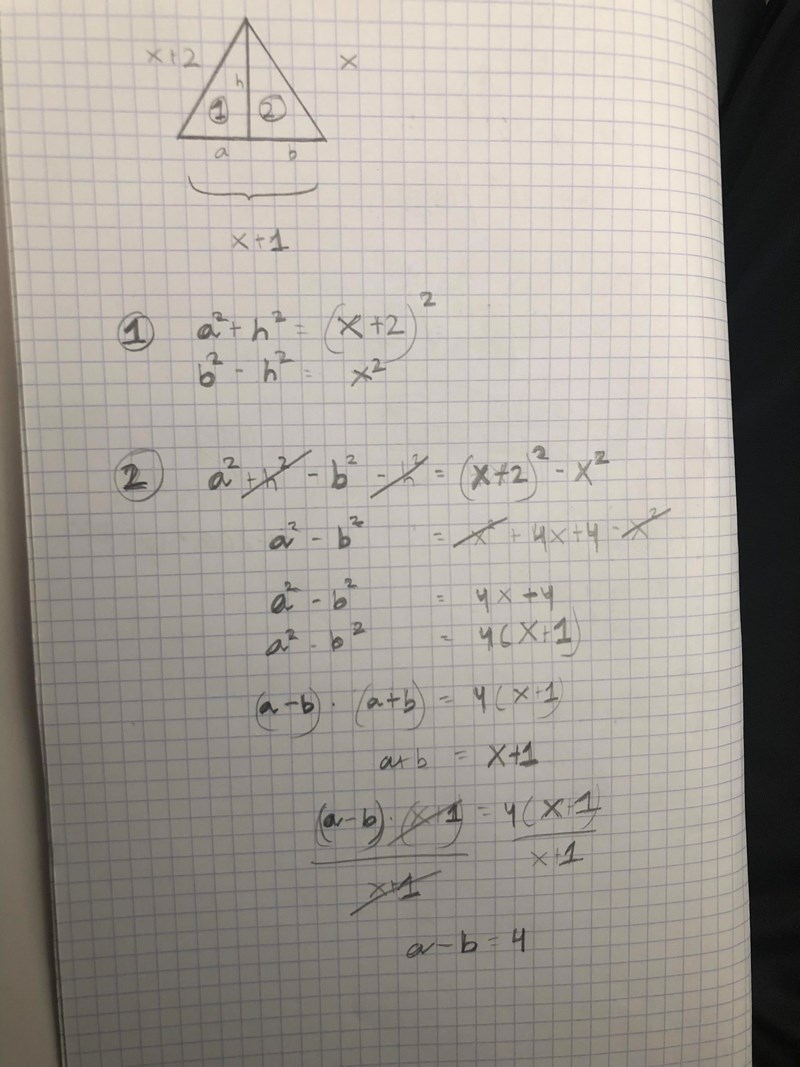 x+2 x
h
① ②
a b
x+1
① a² + h² = (x+2)²
b² - h² = x²
② a² + h² - b² - h² = (x+2)² - x²
a² - b² = x² + 4x+4 - x²
a² - b² = 4x+4
a² - b² = 4(x+1)
(a-b) · (a+b) = 4(x+1)
a+b = x+1
(a-b) · (x+1) = 4(x+1)
x+1 x+1
a-b = 4